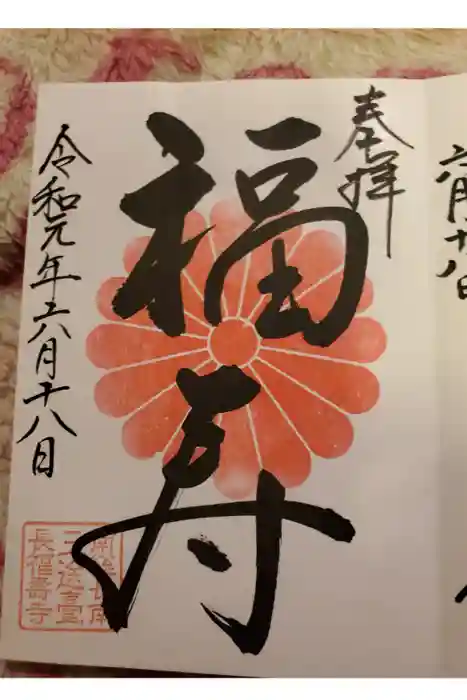 奉拝
福寿
令和元年六月十八日
長福壽寺
六月十八日